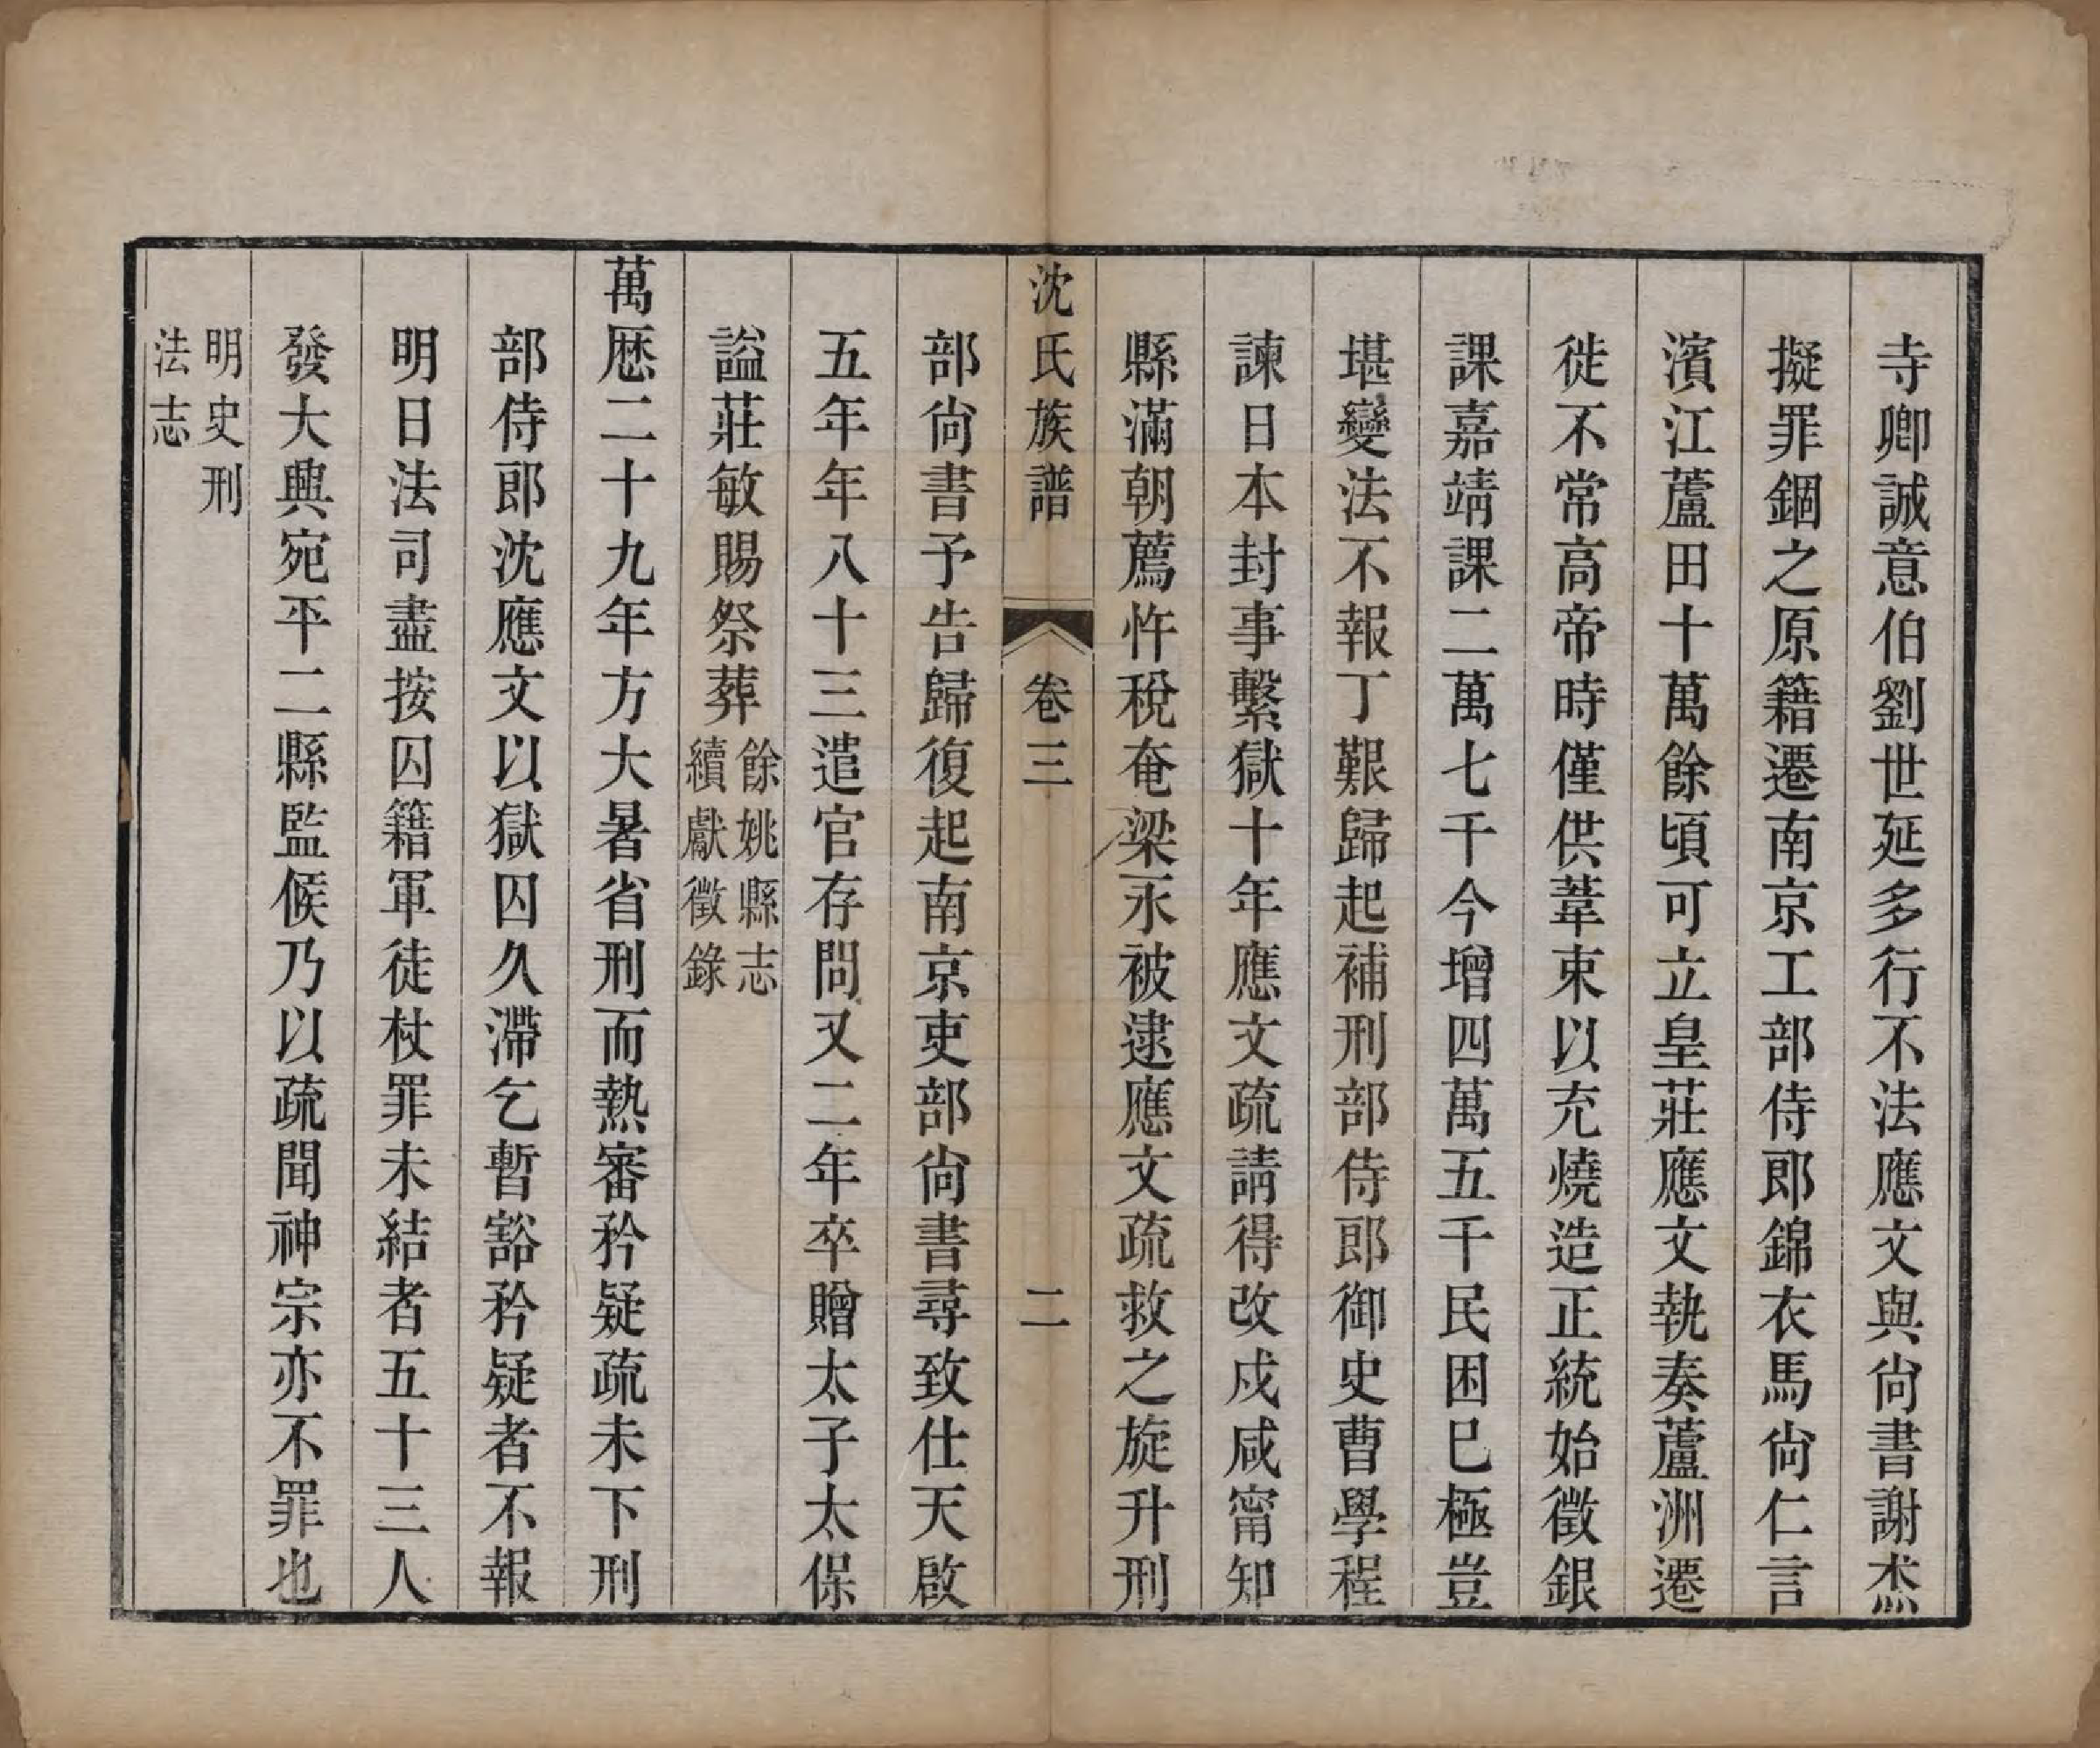 寺卿誠意伯劉世延多行不法應文與尙書謝杰
擬罪錮之原籍遷南京工部侍郎錦衣馬尙仁言
濱江蘆田十萬餘頃可立皇莊應文執奏蘆洲遷
徙不常高帝時僅供葦束以充燒造正統始徵銀
課嘉靖課二萬七千今增四萬五千民困巳極豈
堪變法不報丁艱歸起補刑部侍郎御史曹學程
諫日本封事繫獄十年應文疏請得改戍咸甯知
縣滿朝薦忤稅奄梁永被逮應文疏救之旋升刑
沈氏族譜 卷三 二
部尙書予告歸復起南京吏部尙書尋致仕天啟
五年年八十三遣官存問又二年卒贈太子太保
諡莊敏賜祭葬餘姚縣志
續獻徵錄
萬厯二十九年方大暑省刑而熱審矜疑疏未下刑
部侍郎沈應文以獄囚久滯乞暫豁矜疑者不報
明日法司盡按囚籍軍徒杖罪未結者五十三人
發大興宛平二縣監候乃以疏聞神宗亦不罪也
明史刑
法志